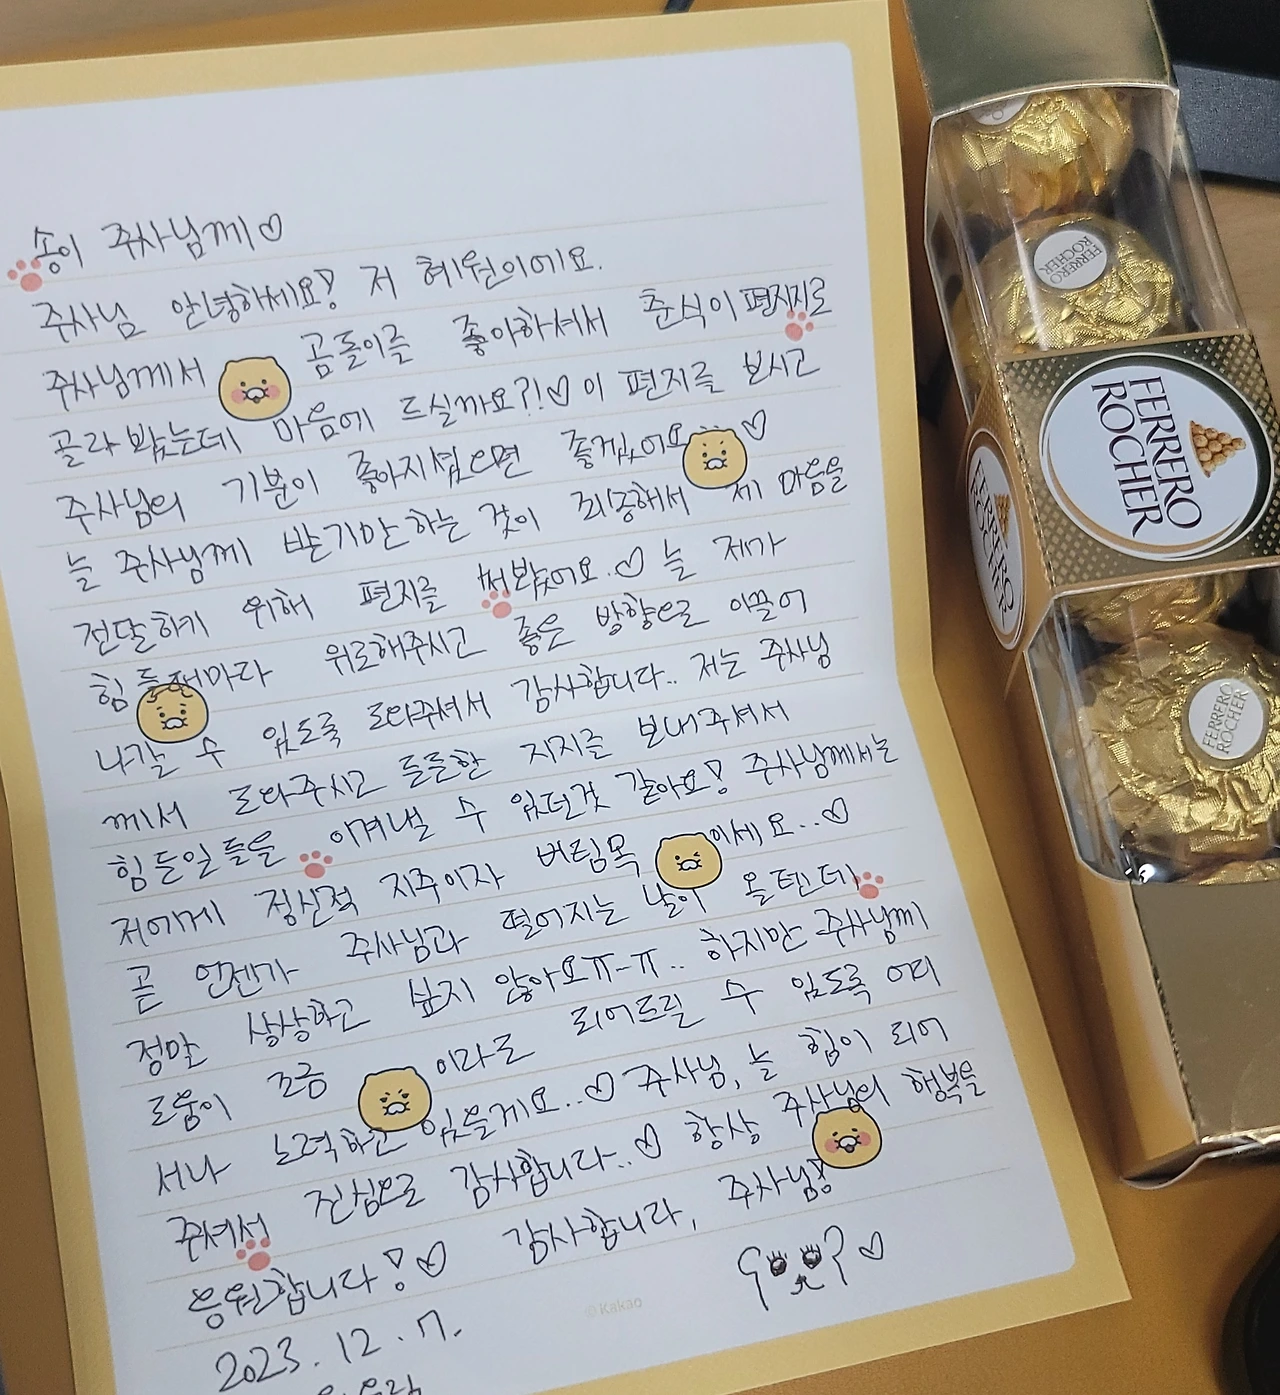 송이 주사님께♡
주사님 안녕하세요! 저 혜원이에요.
주사님께서 곰돌이를 좋아하셔서 춘식이 편지지로
골라봤는데 마음에 드실까요?!♡ 이 편지를 보시고
주사님의 기분이 좋아지셨으면 좋겠어요♡
늘 주사님께 받기만 하는 것이 죄송해서 제 마음을
전달하기 위해 편지를 써봤어요.♡ 늘 제가
힘들때마다 위로해주시고 좋은 방향으로 이끌어
나갈 수 있도록 도와주셔서 감사합니다.. 저는 주사님
께서 도와주시고 든든한 지지를 보내주셔서
힘든일들을 이겨낼 수 있던것 같아요! 주사님께서는
저에게 정신적 지주이자 버팀목이세요..♡
곧 언젠가 주사님과 떨어지는 날이 올텐데
정말 상상하고 싶지 않아요ㅠ-ㅠ.. 하지만 주사님께
조금이라도 되어드릴 수 있도록 어디
도움이
서나 노력하고 있을게요..♡ 주사님, 늘 힘이 되어
주셔서 진심으로 감사합니다..♡ 항상 주사님의 행복을
응원합니다!♡ 감사합니다, 주사님!
2023. 12. 7.
© Kakao
FERRERO
ROCHER
FERRERO
ROCHER
FERRERO
ROCHER
FERRERO
ROCHER